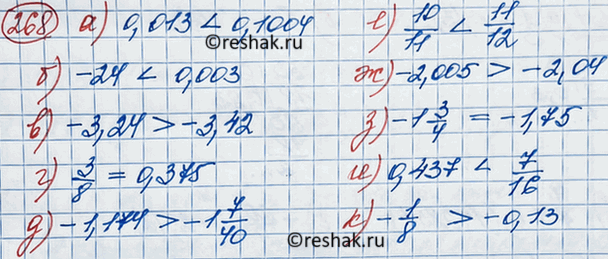 268 а) 0,013 < 0,1004
б) -24 < 0,003
в) -3,24 > -3,42
г) 3/8 = 0,375
д) -1,174 > -1 7/40
е) 10/11 < 11/12
ж) -2,005 > -2,04
з) -1 3/4 = -1,75
и) 0,437 < 7/16
к) -1/8 > -0,13
©reshak.ru
©reshak.ru